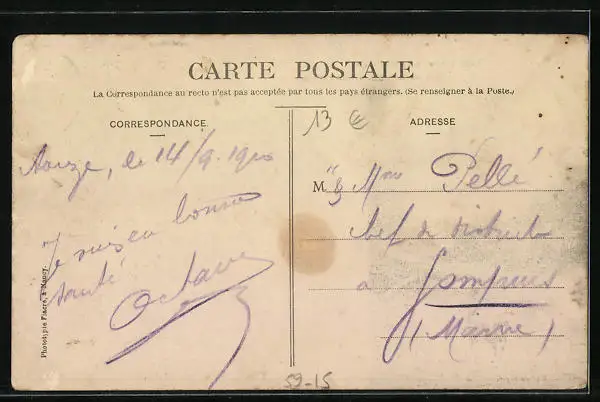 CARTE POSTALE
La Correspondance au recto n'est pas acceptée par tous les pays étrangers. (Se renseigner à la Poste.)
CORRESPONDANCE.
le 14/9-
Je suis en bonne
santé
Octave
Phototypie Fiacre, à Nancy.
13 €
ADRESSE
M Mme Pellé
chef de district
à Sompuis
(Marne)
59-15